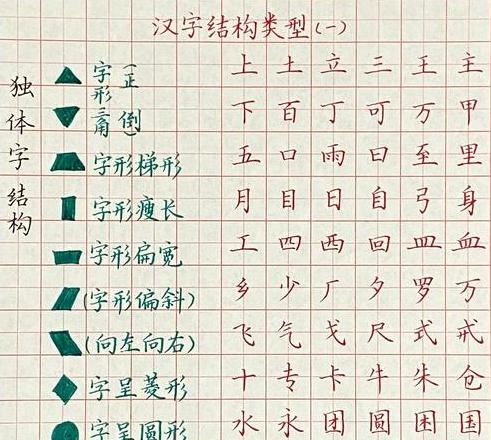 汉字结构类型(一)
独体字结构
字形三角(正 上土立三王主
倒) 下百丁可万甲
字形梯形 五口雨曰至里
字形瘦长 月目日自弓身
字形扁宽 工四西回皿血
(字形偏斜) 乡少厂夕罗万
(向左向右) 飞气戈尺式戒
字呈菱形 十专卡牛朱仓
字呈圆形 水永团圆困国